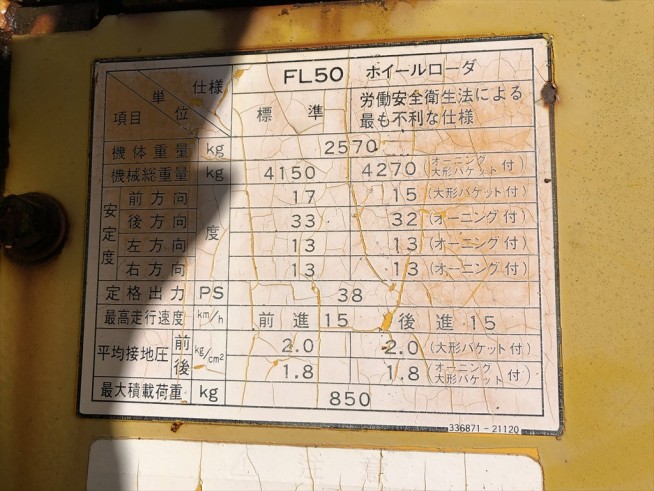 FL50 ホイールローダ
仕様
単位
項目
標準
労働安全衛生法による
最も不利な仕様
機体重量 kg 2570
機械総重量 kg 4150 4270 (オーニング 大形バケット付)
安定度 度
前方向 17 15 (大形バケット付)
後方向 33 32 (オーニング付)
左方向 13 13 (オーニング付)
右方向 13 13 (オーニング付)
定格出力 PS 38
最高走行速度 km/h 前進15 後進15
平均接地圧 kg/cm2
前 2.0 2.0 (大形バケット付)
後 1.8 1.8 (オーニング 大形バケット付)
最大積載荷重 kg 850
336871-21120
注意